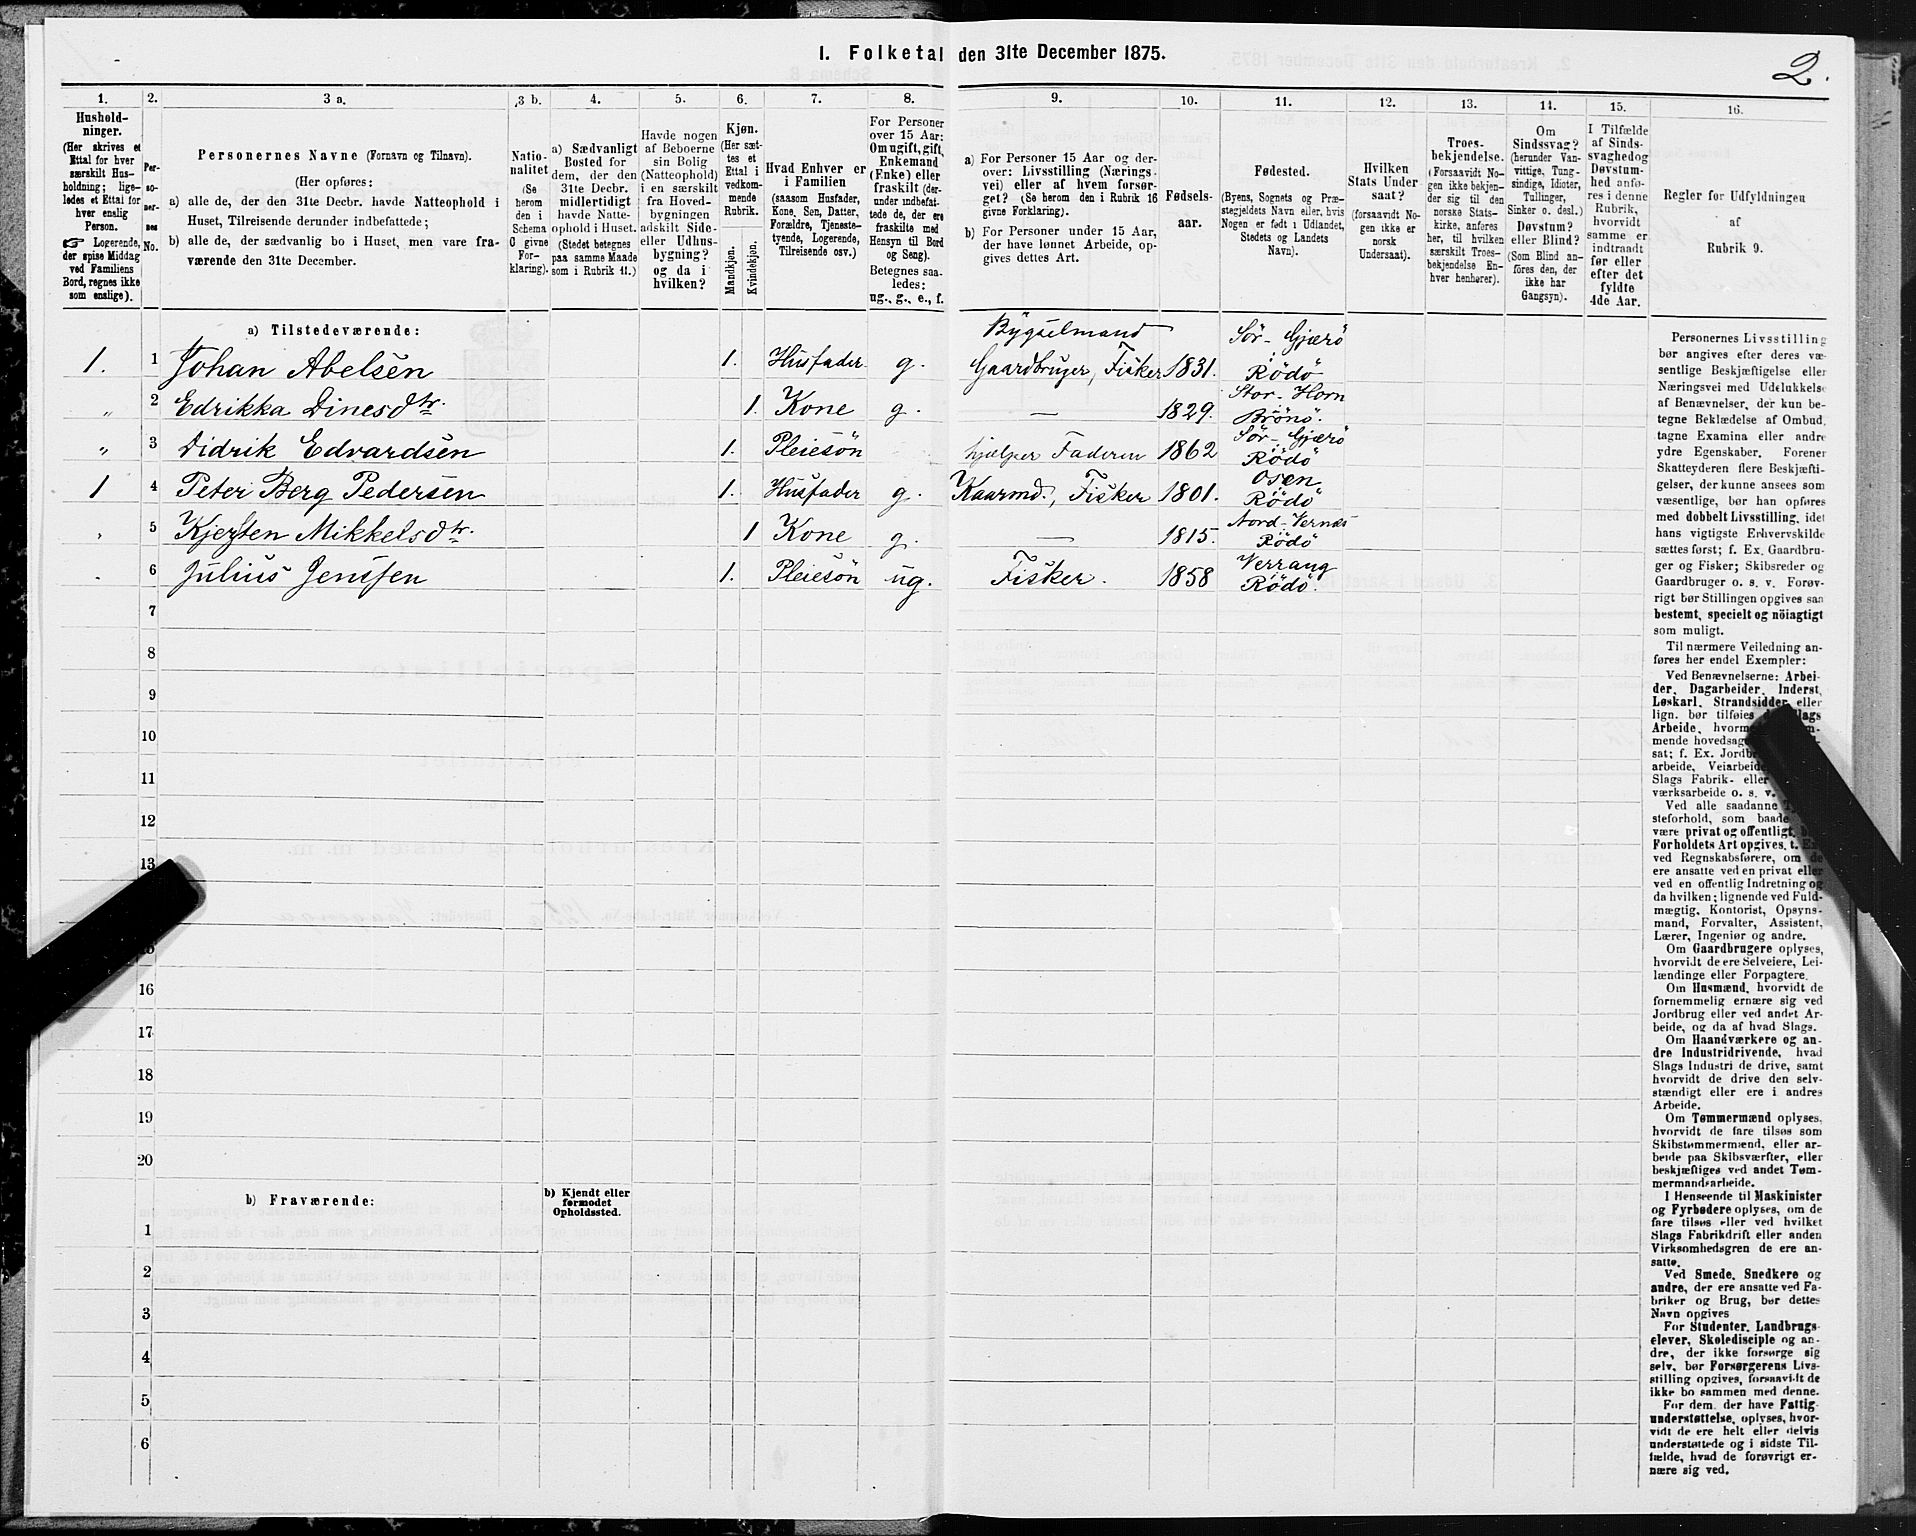 I. Folketal den 31te December 1875.
2.
1. 2. 3 a. 3 b. 4. 5. 6. 7. 8. 9. 10. 11. 12. 13. 14. 15. 16.
Hushold-
ninger.
(Her skrives et
Ettal for hver
særskilt Hus-
holdning; lige-
ledes et Ettal for
hver enslig
Person.
☞ Logerende,
der spise Middag
ved Familiens
Bord, regnes ikke
som enslige).
Per-
so-
ner-
nes
No.
Personernes Navne (Fornavn og Tilnavn).
(Her opføres:
a) alle de, der den 31te Decbr. havde Natteophold i
Huset, Tilreisende derunder indbefattede;
b) alle de, der sædvanlig bo i Huset, men vare fra-
værende den 31te December.
Natio-
nalitet
(Se
herom
den i
Schema
C givne
For-
klaring).
a) Sædvanligt
Bosted for
dem, der den
31te Decbr.
midlertidigt
havde Natte-
ophold i Huset.
(Stedet betegnes
paa samme Maade
som i Rubrik 11.)
Havde nogen
af Beboerne
sin Bolig
(Natteophold)
i en særskilt
fra Hoved-
bygningen
adskilt Side-
eller Udhus-
bygning?
og da i
hvilken?
Kjøn.
(Her sæt-
tes et
Ettal i
vedkom-
mende
Rubrik.
Mandkjøn.
Kvindekjøn.
Hvad Enhver er
i Familien
(saasom Husfader,
Kone, Søn, Datter,
Forældre, Tjeneste-
tyende, Logerende,
Tilreisende osv.)
For Personer
over 15 Aar:
Om ugift, gift,
Enkemand
(Enke) eller
fraskilt (der-
under indbefat-
tede de, der ere
fraskilte med
Hensyn til Bord
og Seng).
Betegnes saa-
ledes:
ug., g., e., f.
a) For Personer 15 Aar og der-
over: Livsstilling (Nærings-
vei) eller af hvem forsør-
get? (Se herom den i Rubrik 16
givne Forklaring).
b) For Personer under 15 Aar,
der have lønnet Arbeide, op-
gives dettes Art.
Fødsels-
aar.
Fødested.
(Byens, Sognets og Præ-
stegjeldets Navn eller, hvis
Nogen er født i Udlandet,
Stedets og Landets
Navn).
Hvilken
Stats Under
saat?
(forsaavidt No-
gen ikke er
norsk
Undersaat).
Troes-
bekjendelse.
(Forsaavidt No-
gen ikke bekjen-
der sig til den
norske Stats-
kirke, anføres
her, til hvilken
særskilt Troes-
bekjendelse En-
hver henhører).
Om
Sindssvag?
(herunder Van-
vittige, Tung-
sindige, Idioter,
Tullinger,
Sinker o. desl.)
Døvstum?
eller Blind?
(Som Blind an-
føres den, der
ikke har
Gangsyn).
I Tilfælde
af Sinds-
svaghedog
Døvstum-
hed anfø-
res i denne
Rubrik,
hvorvidt
samme er
indtraadt
før eller
efter det
fyldte
4de Aar.
Regler for Udfyldningen
af
Rubrik 9.
a) Tilstedeværende:
Bygselmand Sör-Gjærö
1. 1 Johan Abelsen 1. Husfader g. Gaardbruger, Fisker 1831. Rödö
Stor-Horn
„ 2 Edrikka Dinesdtr. 1. Kone g. — 1829. Brönö.
Sör-Gjærö
„ 3 Didrik Edvardsen 1. Pleiesön hjælper Faderen 1862 Rödö
Osen
1 4 Peter Berg Pedersen 1. Husfader g. Kaarmd., Fisker 1801. Rödö
Nord-Vernes
5 Kjersten Mikkelsdtr. 1 Kone g. — 1815. Rödö
Verrang
6 Julius Jensen 1. Pleiesön ug. Fisker. 1858 Rödö.
7
8
9
10
11
12
13
15
16
17
18
19
20
b) Fraværende:
b) Kjendt eller
formodet
Opholdssted.
1
2
3
4
5
6
Personernes Livsstilling
bør angives efter deres væ-
sentlige Beskjæftigelse eller
Næringsvei med Udelukkelse
af Benævnelser, der kun be-
tegne Beklædelse af Ombud,
tagne Examina eller andre
ydre Egenskaber. Forener
Skatteyderen flere Beskjæfti-
gelser, der kunne ansees som
væsentlige, bør han opføres
med dobbelt Livsstilling, idet
hans vigtigste Erhvervskilde
sættes først; f. Ex. Gaardbru-
ger og Fisker; Skibsreder og
Gaardbruger o. s. v. Forøv-
rigt bør Stillingen opgives saa
bestemt, specielt og nöiagtigt
som muligt.
Til nærmere Veiledning an-
føres her endel Exempler:
Ved Benævnelserne: Arbei-
der, Dagarbeider, Inderst,
Løskarl, Strandsidder eller
lign. bør tilføies Slags
Arbeide,
mende
sat; f. Ex.
arbeide,
Slags Fabrik- eller
værksarbeide o. s. v.
Ved alle saadanne
steforhold, som baade
være privat og offentligt,
Forholdets Art opgives, t. Ex.
ved Regnskabsførere, om de
ere ansatte ved en privat eller
ved en offentlig Indretning og
da hvilken; lignende ved Fuld-
mægtig, Kontorist, Opsyns-
mand, Forvalter, Assistent,
Lærer, Ingeniør og andre.
Om Gaardbrugere oplyses,
hvorvidt de ere Selveiere, Lei-
lændinge eller Forpagtere.
Om Husmænd, hvorvidt de
fornemmelig ernære sig ved
Jordbrug eller ved andet Ar-
beide, og da af hvad Slags.
Om Haandværkere og an-
dre Industridrivende, hvad
Slags Industri de drive, samt
hvorvidt de drive den selv-
stændigt eller ere i andres
Arbeide.
Om Tømmermænd oplyses,
hvorvidt de fare tilsøs som
Skibstømmermænd, eller ar-
beide paa Skibsværfter, eller
beskjæftiges ved andet Tøm-
mermandsarbeide.
I Henseende til Maskinister
og Fyrbødere oplyses, om de
fare tilsøs eller ved hvilket
Slags Fabrikdrift eller anden
Virksomhedsgren de ere an-
satte.
Ved Smede, Snedkere og
andre, der ere ansatte ved Fa-
briker og Brug, bør dettes
Navn opgives
For Studenter, Landbrugs-
elever, Skoledisciple og an-
dre, der ikke forsørge sig
selv, bør Forsørgerens Livs-
stilling opgives, forsaavidt de
ikke bo sammen med denne.
For dem, der have Fattig-
understøttelse, oplyses, hvor-
vidt de ere helt eller delvis
understøttede og i sidste Til-
fælde, hvad de forøvrigt er-
nære sig ved.